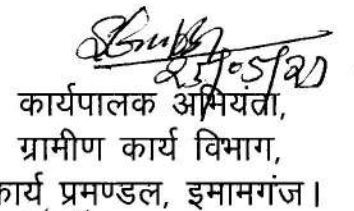 25/05/21
कार्यपालक अभियंता,
ग्रामीण कार्य विभाग,
कार्य प्रमण्डल, इमामगंज।